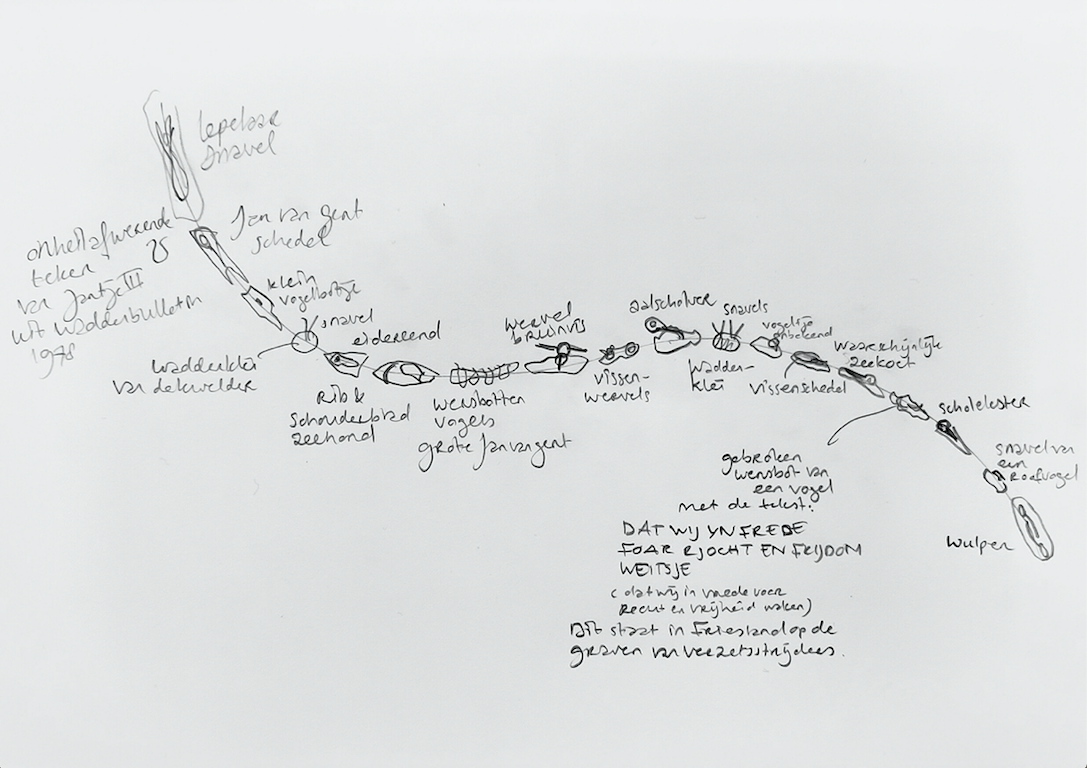 lepelaar
snavel
Jan van Gent
schedel
onheilafwerende
teken
van Jantje III
uit wadderbulletin
1978
klein
vogelbotje
snavel
eidereend
wadderklei
van de kwelder
Rib &
schouderblad
zeehond
wensbotten
vogels
grote Jan van gent
wervel
bruinvis
vissen-
wervels
aalscholver
snavels
wadder-
klei
vogeltje
onbekend
vissenschedel
waarschijnlijk
zeekoet
scholekster
snavel van
een
Roofvogel
wulpen
gebroken
wensbot van
een vogel
met de tekst:
DAT WIJ YN FREDE
FOAR RJOCHT EN FRIJDOM
WEITSJE
(dat wij in vrede voor
Recht en vrijheid waken)
Dit staat in Friesland op de
graven van verzetsstrijders.